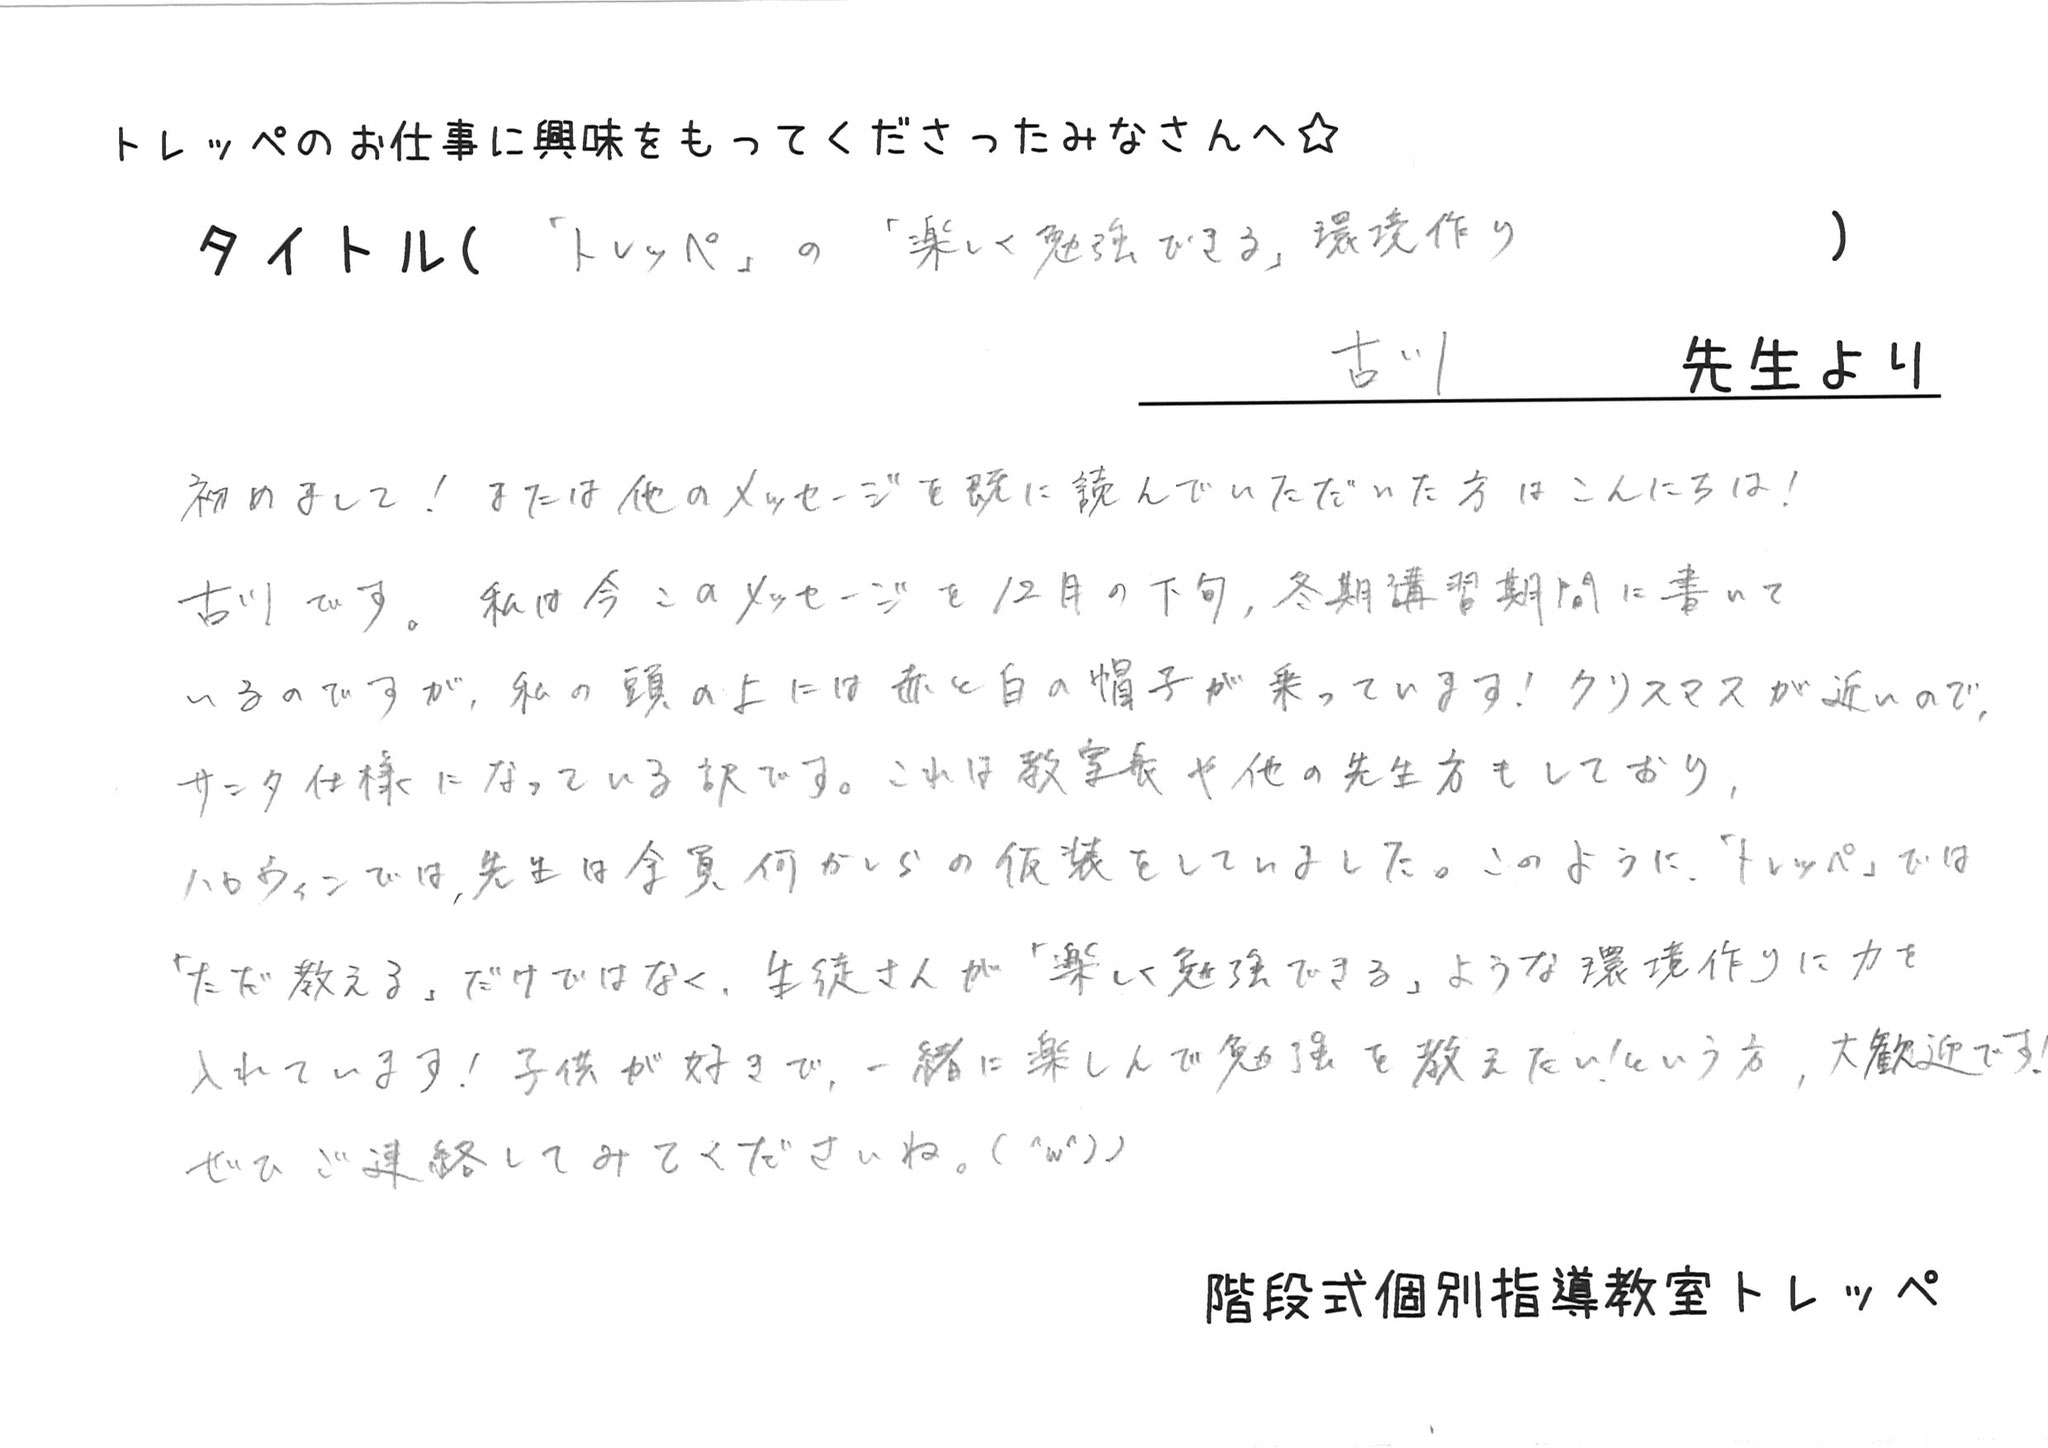 トレッペのお仕事に興味をもってくださったみなさんへ☆
タイトル(「トレッペ」の「楽しく勉強できる」環境作り)
古川 先生より
初めまして！または他のメッセージを既に読んでいただいた方はこんにちは！
古川です。私は今このメッセージを12月の下旬,冬期講習期間に書いて
いるのですが,私の頭の上には赤と白の帽子が乗っています！クリスマスが近いので,
サンタ仕様になっている訳です。これは教室長や他の先生方もしており,
ハロウィンでは,先生は全員何かしらの仮装をしていました。このように,「トレッペ」では
「ただ教える」だけではなく,生徒さんが「楽しく勉強できる」ような環境作りに力を
入れています！子供が好きで,一緒に楽しんで勉強を教えたい！という方,大歓迎です！
ぜひご連絡してみてくださいね。(^w^))
階段式個別指導教室トレッペ